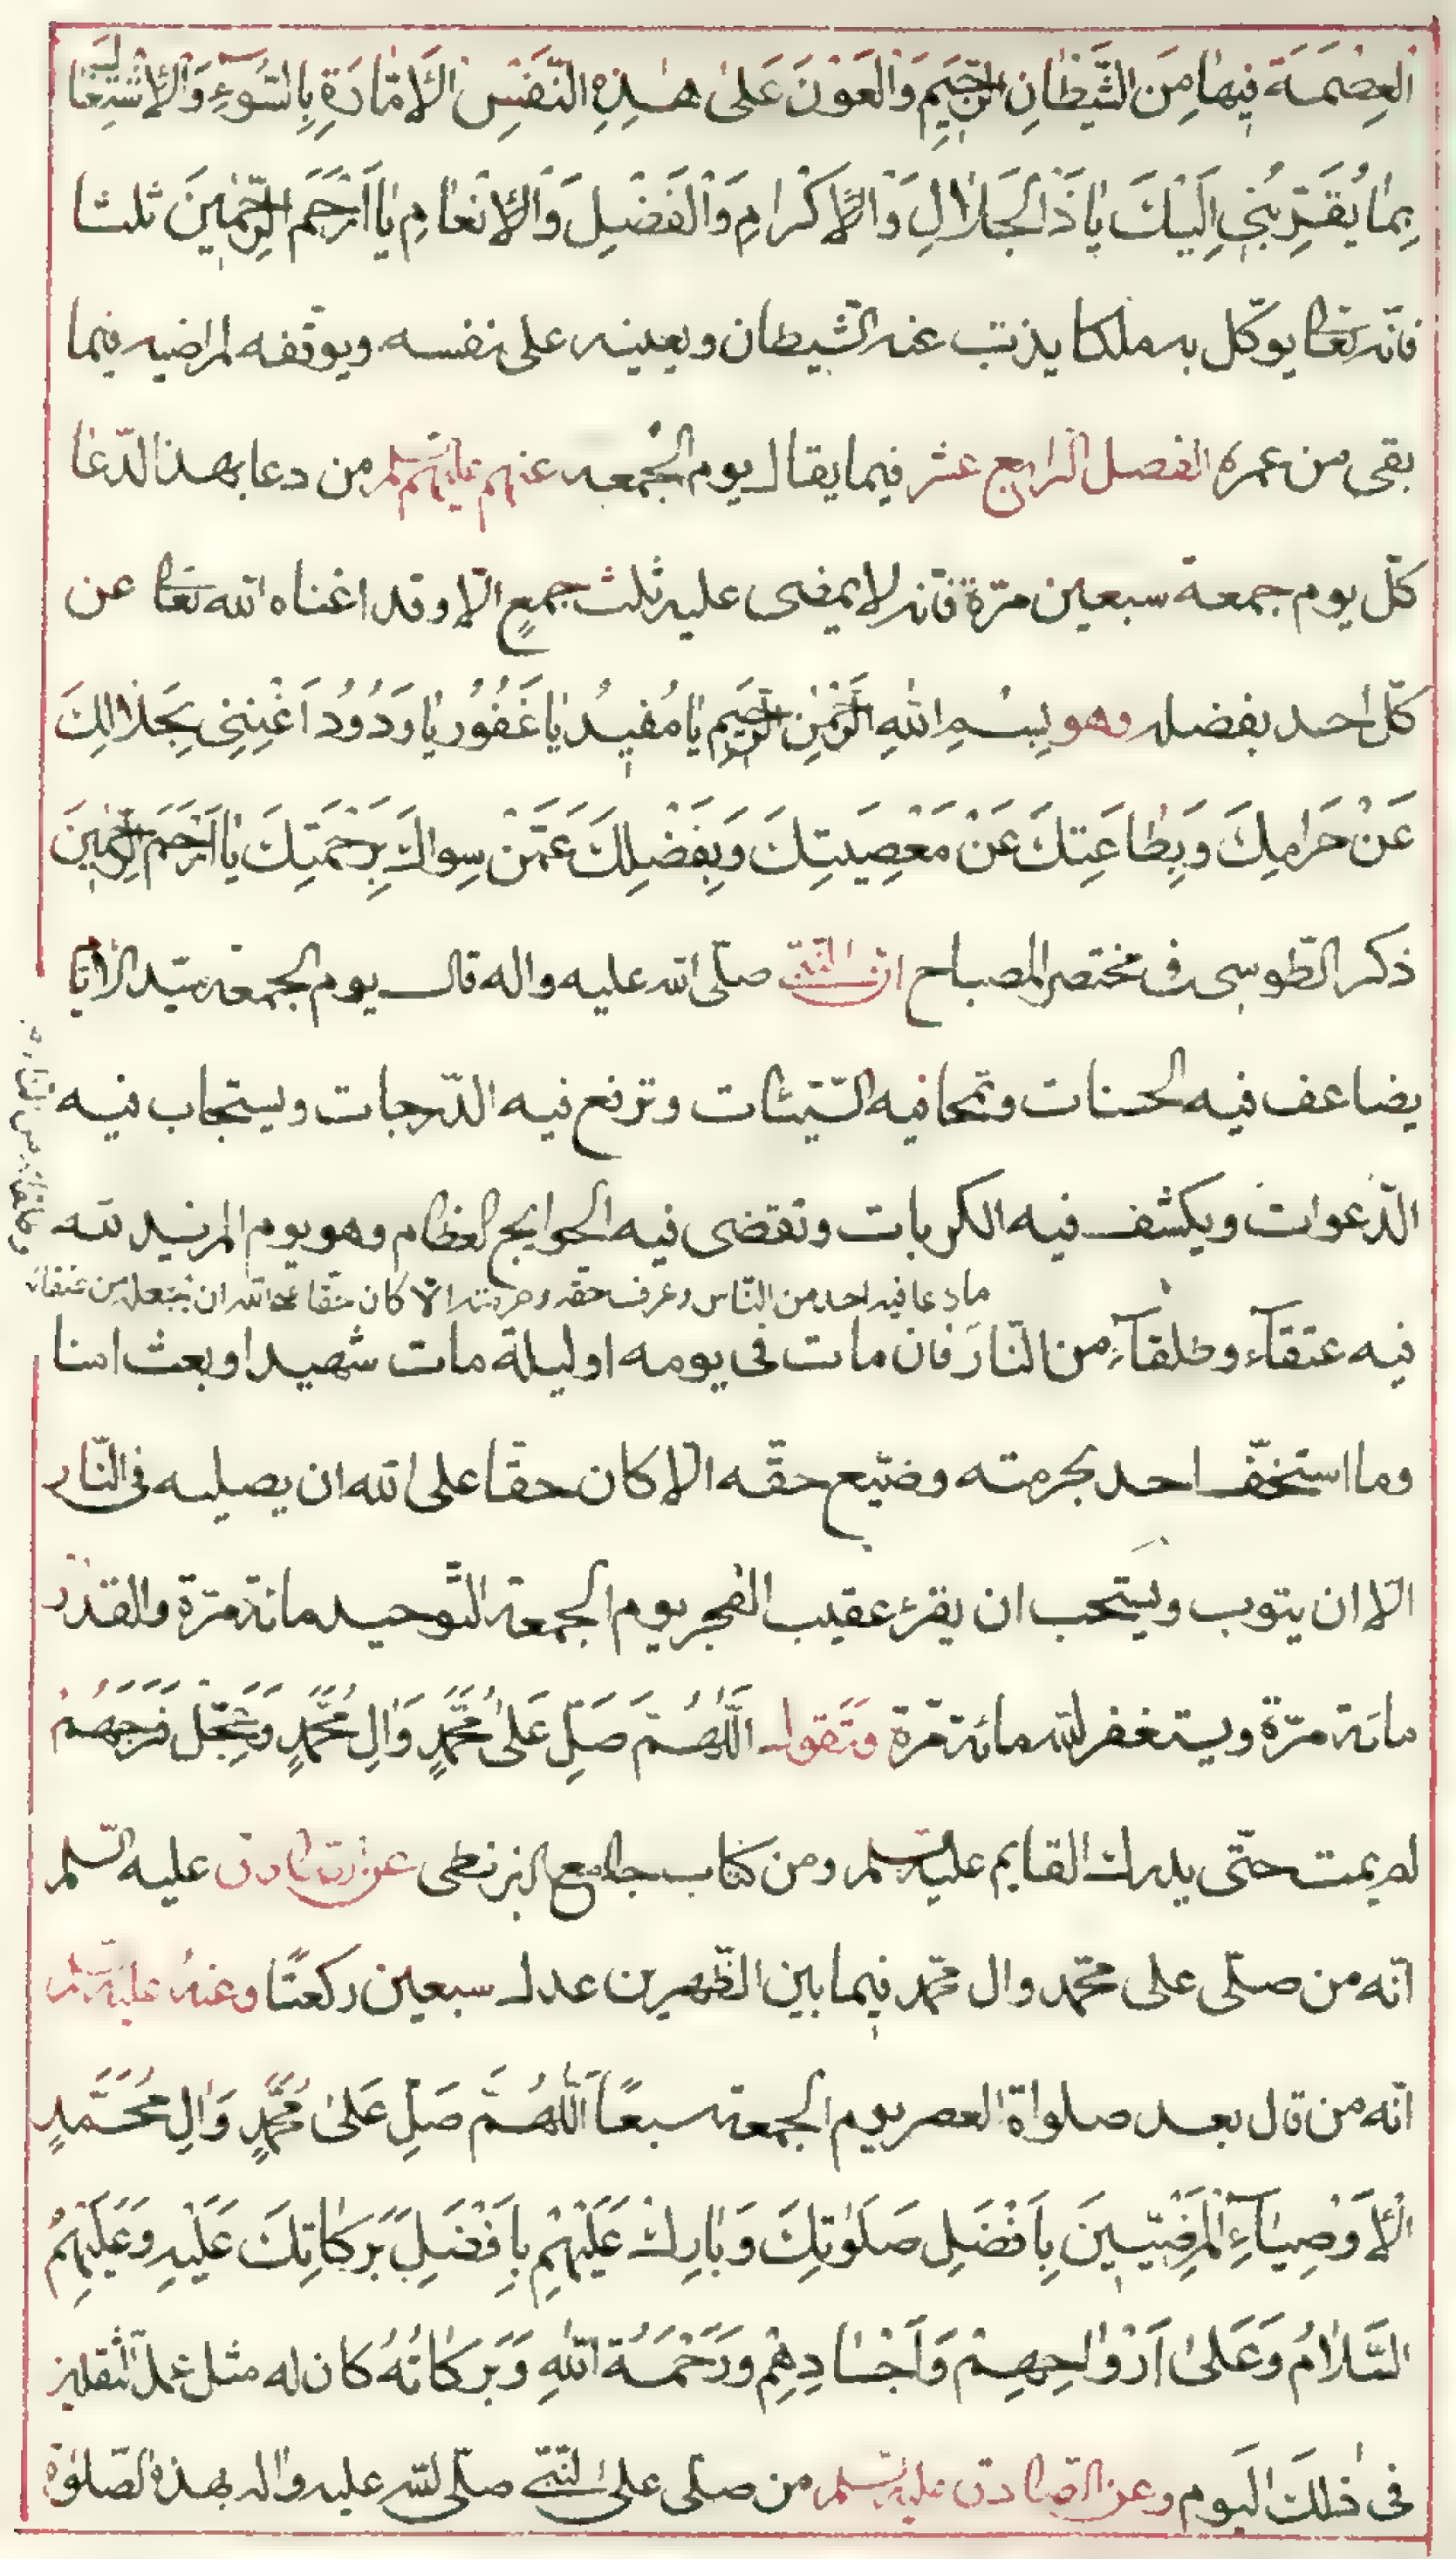 اَلْعِصْمَةَ فِيهَا مِنَ الشَّيْطَانِ الرَّجِيمِ وَالْعَوْنَ عَلىٰ هٰذِهِ النَّفْسِ الْأَمَّارَةِ بِالسُّوۤءِ وَالْاِشْتِغَالَ
بِمَا يُقَرِّبُنِي اِلَيْكَ يَا ذَا الْجَلَالِ وَالْاِكْرَامِ وَالْفَضْلِ وَالْاِنْعَامِ يَا اَرْحَمَ الرَّاحِمِينَ ثلثا
فانّه تعالى يوكّل به ملكا يذبّ عنه الشّيطان ويعينه على نفسه ويوفّقه لمراضيه فيما
بقى من عمره الفصل الرابع عشر فيما يقال يوم الجمعه عنهم عليهم السّلم من دعا بهذا الدّعا
كلّ يوم جمعة سبعين مرّة فانّه لا يمضى عليه ثلث جمعٍ الّا وقد اغناه الله تعالى عن
كلّ احد بفضله وهو بِسْمِ اللهِ الرَّحْمٰنِ الرَّحِيمِ يَا مُفِيدُ يَا غَفُورُ يَا وَدُودُ اَغْنِنِى بِحَلَالِكَ
عَنْ حَرَامِكَ وَبِطَاعَتِكَ عَنْ مَعْصِيَتِكَ وَبِفَضْلِكَ عَمَّنْ سِوَاكَ بِرَحْمَتِكَ يَا اَرْحَمَ الرَّاحِمِينَ
ذكر الطّوسى فى مختصر المصباح انّ النّبىّ صلّى الله عليه واله قال يوم الجمعة سيّد الأيّام
يضاعف فيه الحسنات وتمحا فيه السّيّئات وترفع فيه الدّرجات ويستجاب فيه
الدّعوات ويكشف فيه الكربات وتقضى فيه الحوايج العظام وهو يوم المزيد لله
ما دعا فيه احد من النّاس وعرف حقّه وحرمته الّا كان حقّا على الله ان يجعله من عتقائه
وطلقائه من النار
فيه عتقآء وطلقآء من النّار فان مات فى يومه او ليلة مات شهيدا وبعث امنا
وما استخفّ احد بحرمته وضيّع حقّه الّا كان حقّا على الله ان يصليه فى النّار
الّا ان يتوب ويستحب ان يقرء عقيب الفجر يوم الجمعة التّوحيد مائة مرّة والقدر
مائة مرّة ويستغفر لله مائة مرّة وتقول اَللّٰهُمَّ صَلِّ عَلىٰ مُحَمَّدٍ وَاٰلِ مُحَمَّدٍ وَعَجِّلْ فَرَجَهُمْ
لم يمت حتّى يدرك القايم عليه السّلم ومن كتاب جامع البزنطى عن الصّادق عليه السّلم
انّه من صلّى على محمّد وال محمّد فيما بين الظّهرين عدل سبعين ركعتًا وعنهُ عليه السّلم
انّه من قال بعد صلواة العصر يوم الجمعة سبعًا اَللّٰهُمَّ صَلِّ عَلىٰ مُحَمَّدٍ وَاٰلِ مُحَمَّدٍ
اَلْأَوْصِيَاۤءِ الْمَرْضِيِّينَ بِاَفْضَلِ صَلَوٰتِكَ وَبَارِكْ عَلَيْهِمْ بِاَفْضَلِ بَرَكَاتِكَ عَلَيْهِ وَعَلَيْهِمُ
السَّلَامُ وَعَلىٰ اَرْوَاحِهِمْ وَاَجْسَادِهِمْ وَرَحْمَةُ اللهِ وَبَرَكَاتُهُ كان له مثل عمل الثّقلين
فى ذٰلك اليوم وعن الصّادق عليه السّلم من صلّى على النّبىّ صلّى الله عليه واله بهذه الصّلوٰة